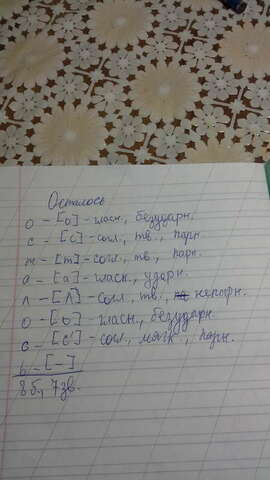 Осталось
о - [о] - гласн., безударн.
с - [с] - согл., тв., парн.
т - [т] - согл., тв., парн.
а - [а] - гласн., ударн.
л - [л] - согл., тв., непарн.
о - [о] - гласн., безударн.
с - [с'] - согл., мягк., парн.
ь - [-]
8 б., 7 зв.